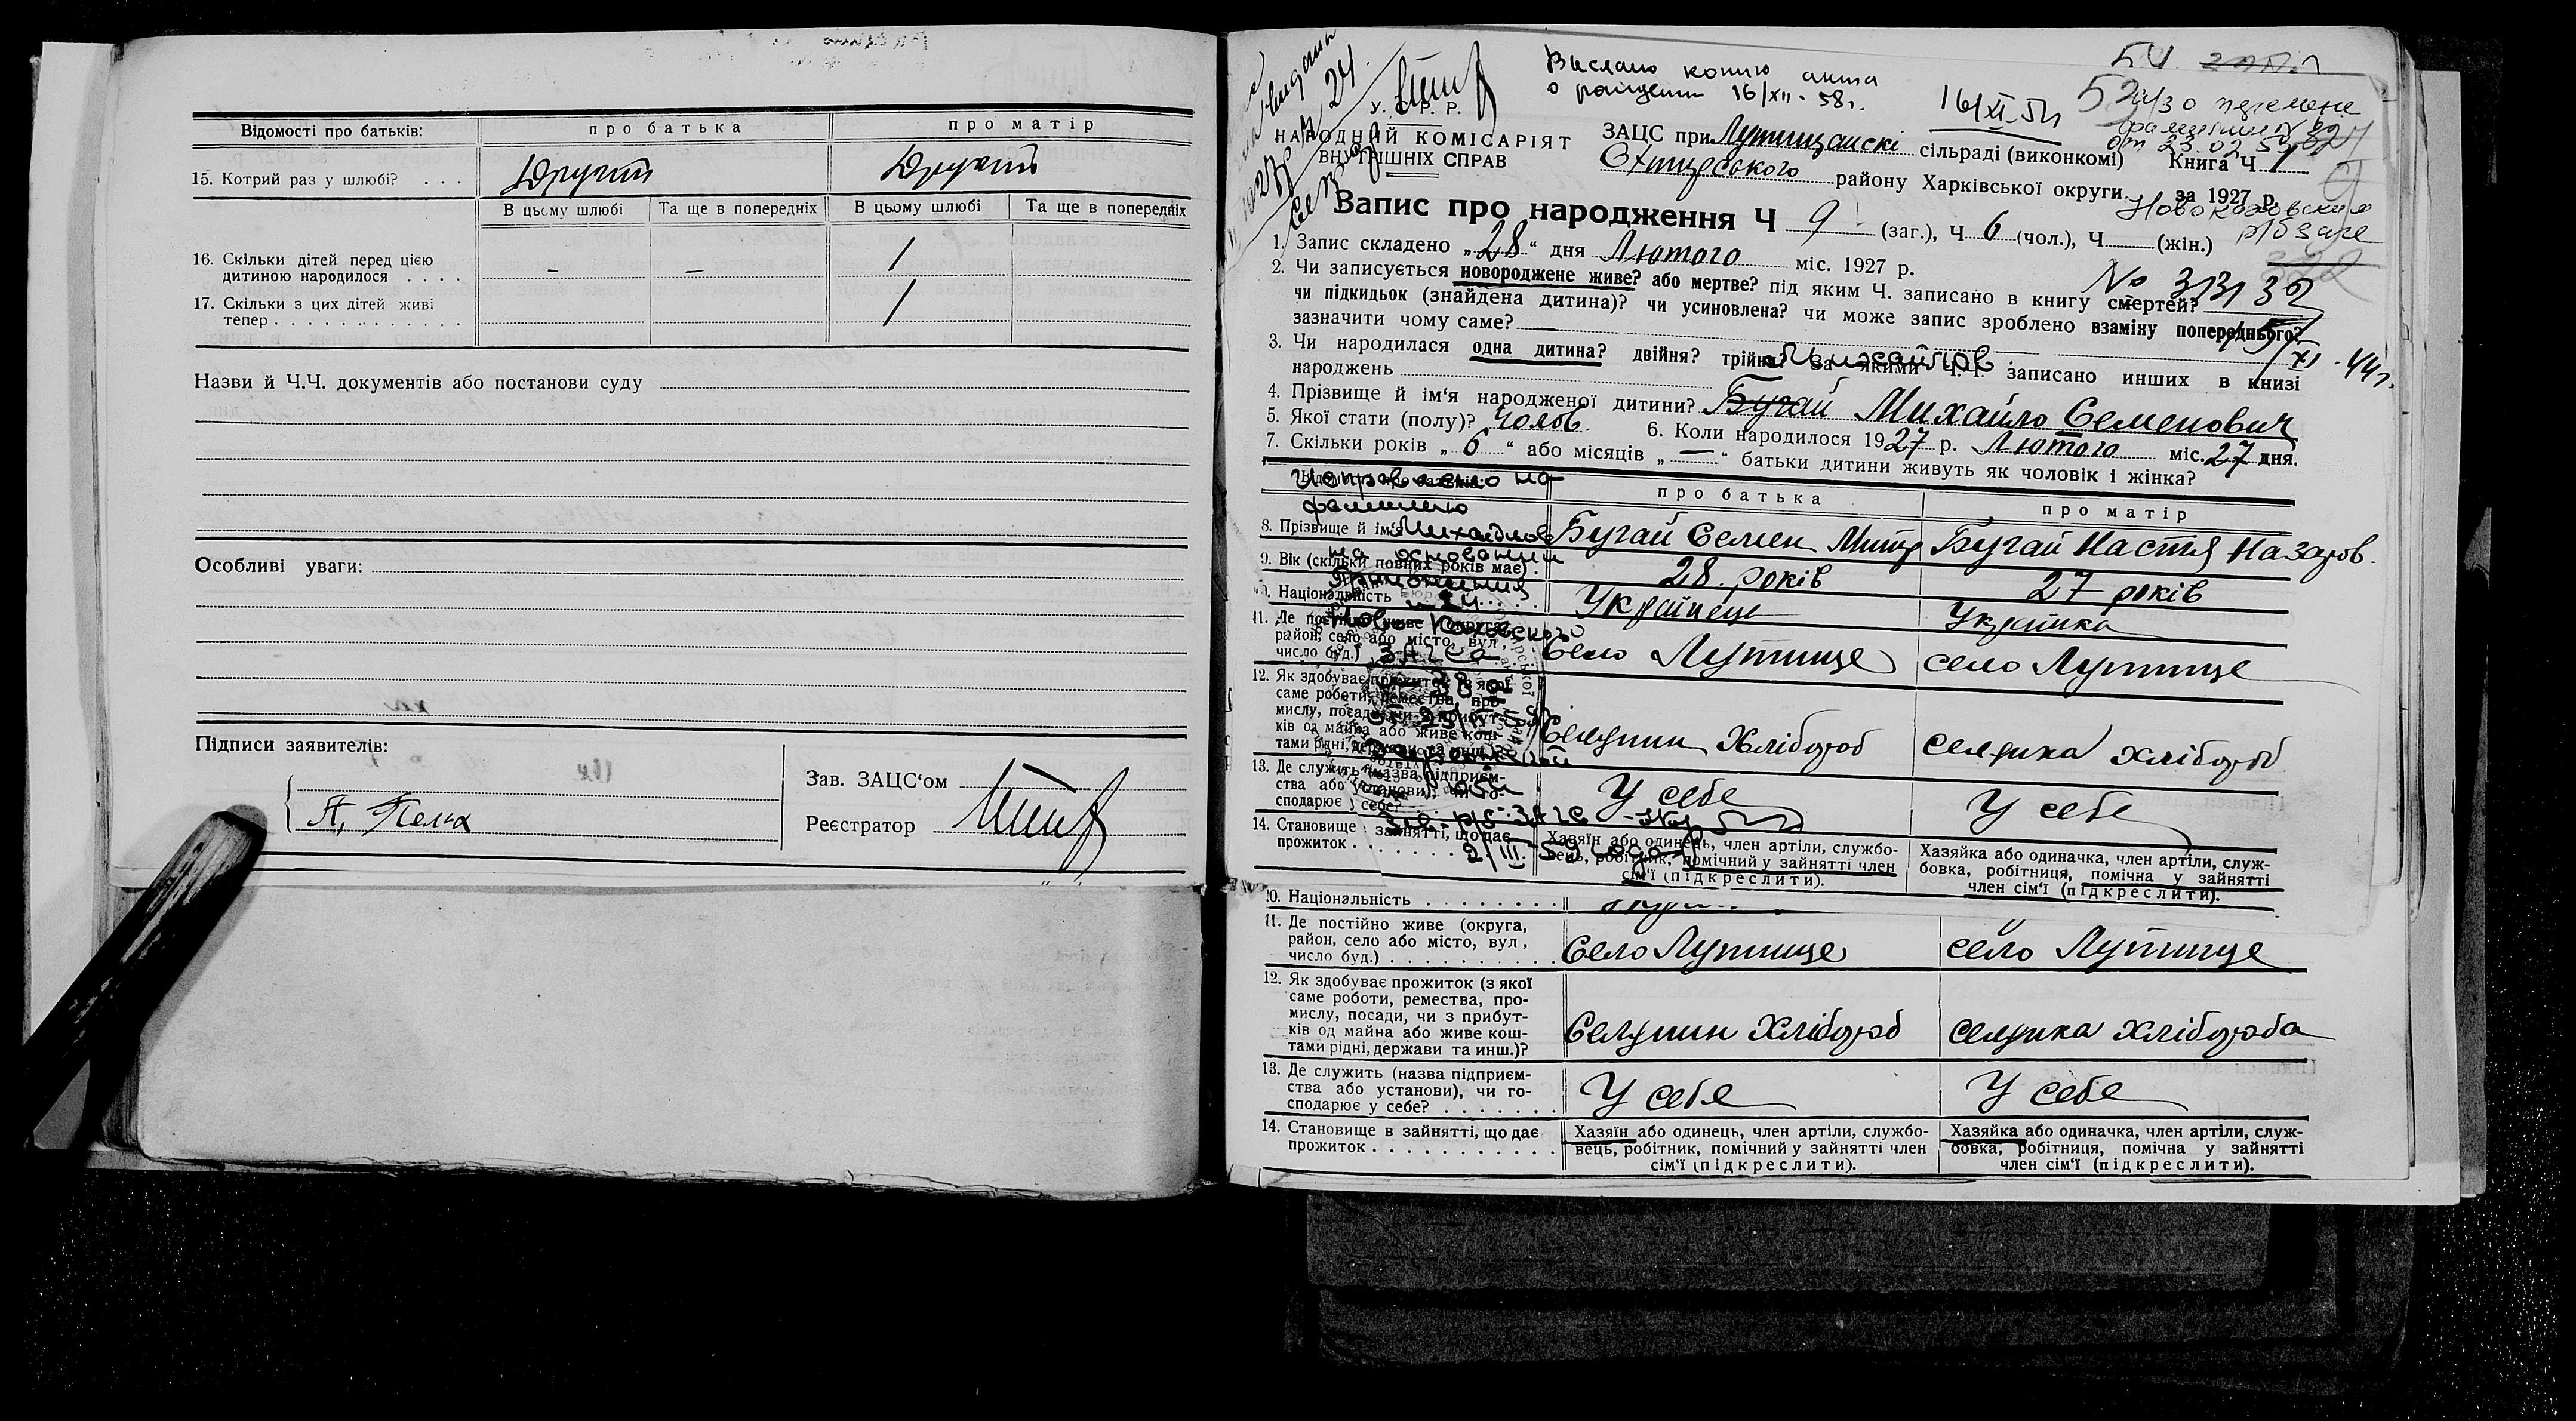 Відомості про батьків:
про батька
про матір
15. Котрий раз у шлюбі? . . .
Другий
Другий
В цьому шлюбі
Та ще в попередніх
В цьому шлюбі
Та ще в попередніх
16. Скільки дітей перед цією
дитиною народилося . . . .
—
—
1
17. Скільки з цих дітей живі
тепер . . . . . . . . . . . .
1
Назви й Ч.Ч. документів або постанови суду
Особливі уваги:
Підписи заявителів:
Зав. ЗАЦС'ом
Реєстратор
Выслано копию акта
о рождении 16/XII-58г.
54
У. С. Р. Р.
НАРОДНІЙ КОМІСАРІЯТ
ВНУТРІШНІХ СПРАВ
ЗАЦС при сільраді (виконкомі)
району Харківської округи.
о перемене
фамилии №
от 23.02.59
Книга Ч. 1
за 1927 р.
Запис про народження Ч 9 (заг.), Ч 6 (чол.), Ч (жін.)
1. Запис складено „28“ дня Лютого міс. 1927 р.
2. Чи записується новороджене живе? або мертве? під яким Ч. записано в книгу смертей?
чи підкидьок (знайдена дитина)? чи усиновлена? чи може запис зроблено взаміну попереднього?
зазначити чому саме? —
3. Чи народилася одна дитина? двійня? трійня? За якими Ч.Ч. записано инших в книзі
народжень
Михайлов
4. Прізвище й ім'я народженої дитини? Бугай Михайло Семенович
5. Якої стати (полу)? Чолов. 6. Коли народилося 1927 р. Лютого міс. 27 дня.
7. Скільки років „6“ або місяців „—“ батьки дитини живуть як чоловік і жінка?
Исправлено на
фамилию
Михайлов
на основании
про батька
про матір
8. Прізвище й ім'я
Бугай Семен Митр
Бугай Настя Назаров.
9. Вік (скільки повних років має) .
28 років
27 років
Національність
Українець
Українка
11. Де постійно живе (округа,
район, село або місто, вул,
число буд.)
село Лутище
село Лутище
12. Як здобуває прожиток (з якої
саме роботи, ремества, про-
мислу, посади, чи з прибут-
ків од майна або живе кош-
тами рідні, держави та инш.)?
Селянин Хлібороб
селянка хлібороб
13. Де служить (назва підприєм-
ства або установи), чи го-
сподарює у себе?
У себе
У себе
14. Становище в зайнятті, що дає
прожиток . . . . . .
Хазяїн або одинець, член артіли, службо-
вець, робітник, помічний у зайнятті член
сім'ї (підкреслити).
Хазяйка або одиначка, член артіли, служ-
бовка, робітниця, помічна у зайнятті
член сім'ї (підкреслити).
0. Національність . . . . . . . .
11. Де постійно живе (округа,
район, село або місто, вул,
число буд.) . . . . . . . . . .
Село Лутище
село Лутище
12. Як здобуває прожиток (з якої
саме роботи, ремества, про-
мислу, посади, чи з прибут-
ків од майна або живе кош-
тами рідні, держави та инш.)?
Селянин Хлібороб
селянка хлібороба
13. Де служить (назва підприєм-
ства або установи), чи го-
сподарює у себе? . . . . . . .
У себе
У себе
14. Становище в зайнятті, що дає
прожиток . . . . . . . . . . . .
Хазяїн або одинець, член артіли, службо-
вець, робітник, помічний у зайнятті член
сім'ї (підкреслити).
Хазяйка або одиначка, член артіли, служ-
бовка, робітниця, помічна у зайнятті
член сім'ї (підкреслити).